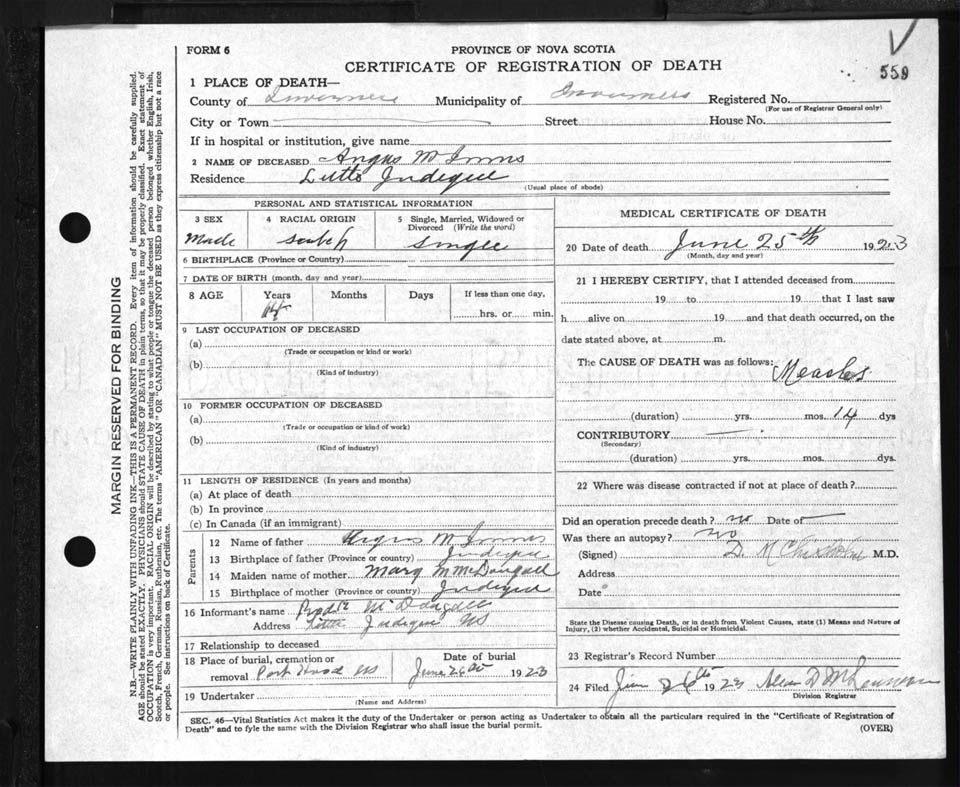 FORM 6
PROVINCE OF NOVA SCOTIA
CERTIFICATE OF REGISTRATION OF DEATH
559
1 PLACE OF DEATH—
County of Inverness Municipality of Inverness Registered No.
(For use of Registrar General only)
City or Town Street House No.
If in hospital or institution, give name
2 NAME OF DECEASED Angus M Innis
Residence Little Judique
(Usual place of abode)
PERSONAL AND STATISTICAL INFORMATION
3 SEX
Male
4 RACIAL ORIGIN
Scotch
5 Single, Married, Widowed or Divorced (Write the word)
Single
6 BIRTHPLACE (Province or Country)
7 DATE OF BIRTH (month, day and year)
8 AGE Years Months Days If less than one day,
14 hrs. or min.
9 LAST OCCUPATION OF DECEASED
(a)
(Trade or occupation or kind or work)
(b)
(Kind of industry)
10 FORMER OCCUPATION OF DECEASED
(a)
(Trade or occupation or kind of work)
(b)
(Kind of industry)
11 LENGTH OF RESIDENCE (In years and months)
(a) At place of death
(b) In province
(c) In Canada (if an immigrant)
Parents
12 Name of father Angus M Innis
13 Birthplace of father (Province or country) Judique
14 Maiden name of mother Mary M McDougall
15 Birthplace of mother (Province or country) Judique
16 Informant's name McDougall
Address Little Judique NS
17 Relationship to deceased
18 Place of burial, cremation or removal Port Hood NS
Date of burial
June 26 1923
19 Undertaker
(Name and Address)
MEDICAL CERTIFICATE OF DEATH
20 Date of death June 25th 1923
(Month, day and year)
21 I HEREBY CERTIFY, that I attended deceased from
19 to 19 that I last saw
h alive on 19 and that death occurred, on the
date stated above, at m.
The CAUSE OF DEATH was as follows: Measles
(duration) yrs. mos. 14 dys
CONTRIBUTORY —
(Secondary)
(duration) yrs. mos. dys.
22 Where was disease contracted if not at place of death?
Did an operation precede death? no Date of —
Was there an autopsy? no
(Signed) D. McChisholm M.D.
Address
Date
State the Disease causing Death, or in death from Violent Causes, state (1) Means and Nature of
Injury, (2) whether Accidental, Suicidal or Homicidal.
23 Registrar's Record Number
24 Filed 26th 1923
Division Registrar
SEC. 46—Vital Statistics Act makes it the duty of the Undertaker or person acting as Undertaker to obtain all the particulars required in the "Certificate of Registration of
Death" and to fyle the same with the Division Registrar who shall issue the burial permit.
(OVER)
MARGIN RESERVED FOR BINDING
N.B.—WRITE PLAINLY WITH UNFADING INK—THIS IS A PERMANENT RECORD. Every item of information should be carefully supplied.
AGE should be stated EXACTLY. PHYSICIANS should STATE CAUSE OF DEATH in plain terms, so that it may be properly classified. Exact statement of
OCCUPATION is very important. RACIAL ORIGIN will be described by stating to what people or tongue the deceased person belonged whether English, Irish,
Scotch, French, German, Russian, Ruthenian, etc. The terms "AMERICAN" OR "CANADIAN" MUST NOT BE USED as they express citizenship but not a race
or people. See instructions on back of Certificate.